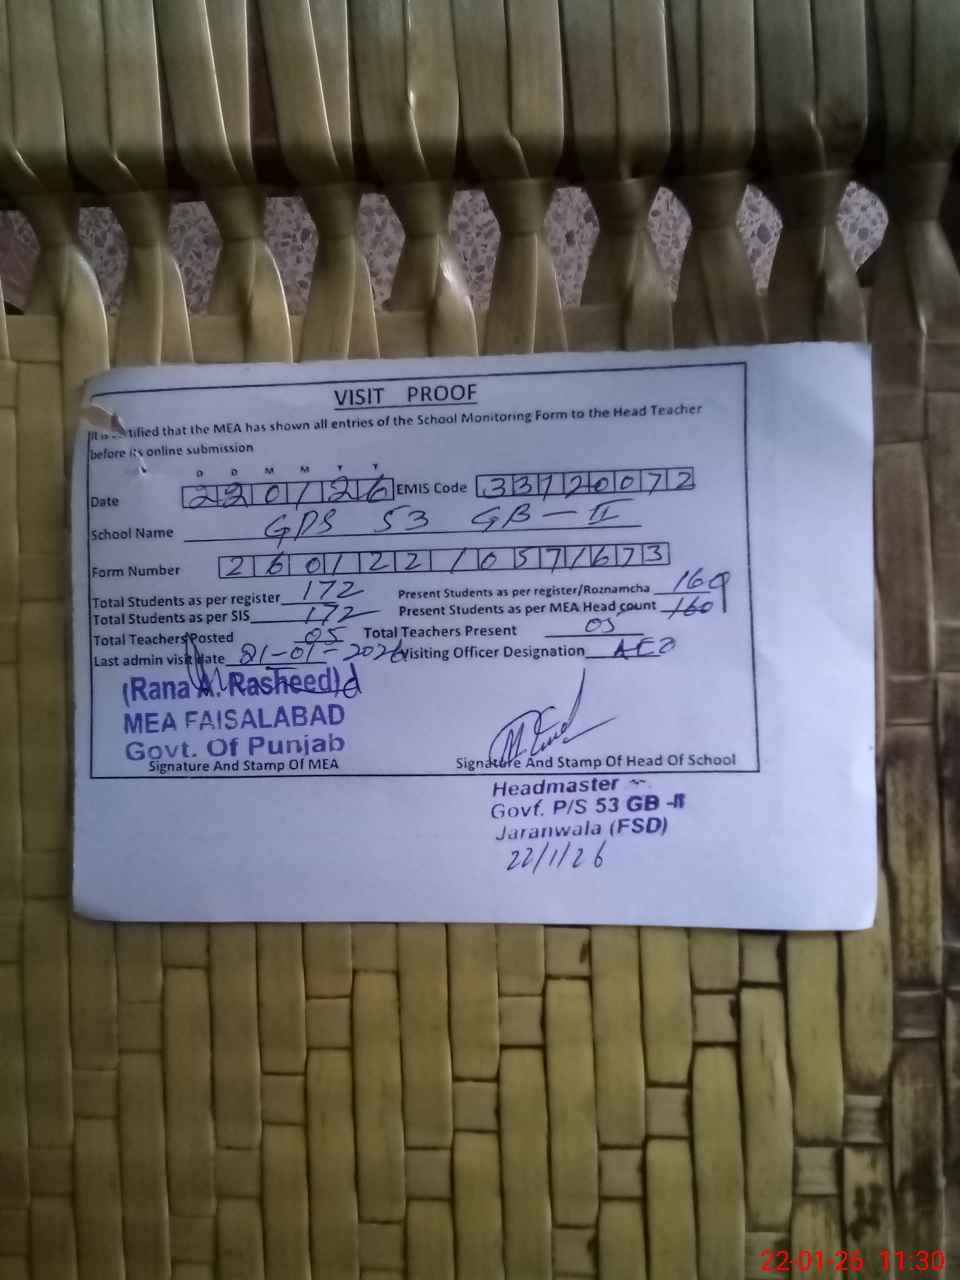 VISIT PROOF
It is certified that the MEA has shown all entries of the School Monitoring Form to the Head Teacher
before its online submission
D D M M Y Y
Date 220126 EMIS Code 33120072
School Name GPS 53 GB-II
Form Number 26012210571673
Total Students as per register 172 Present Students as per register/Roznamcha 160
Total Students as per SIS 172 Present Students as per MEA Head count 160
Total Teachers Posted 05 Total Teachers Present 05
Last admin visit date 21-01-2026 Visiting Officer Designation AEO
(Rana A. Rasheed)
MEA FAISALABAD
Govt. Of Punjab
Signature And Stamp Of MEA Signature And Stamp Of Head Of School
Headmaster
Govt. P/S 53 GB -II
Jaranwala (FSD)
22/1/26
22-01-26 11:30